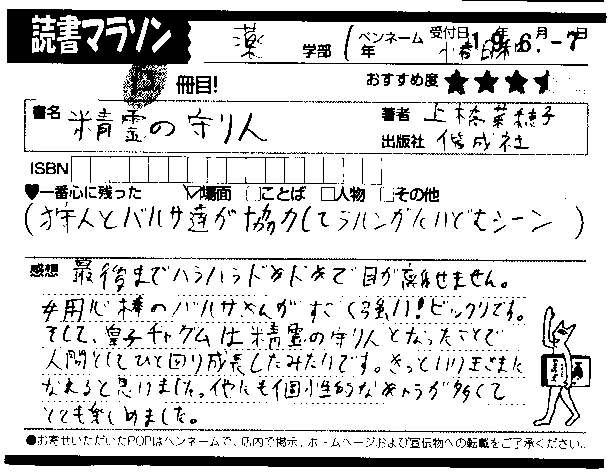 読書マラソン 薬 学部 1年 ペンネーム 受付日 19年6月-7日
冊目! おすすめ度 ★★★
書名 精霊の守り人 著者 上橋菜穂子
出版社 偕成社
ISBN
♥一番心に残った 場面 ことば 人物 その他
(狩人とバルサ達が協力してラルンガにいどむシーン)
感想 最後までハラハラドキドキで目が離せません。
女用心棒のバルサさんがすごく強い!ビックリです。
そして、皇子チャグムは精霊の守り人となったことで
人間としてひと回り成長したみたいです。きっといい王さまに
なれると思いました。他にも個性的なキャラが多くて
とても楽しめました。
●お寄せいただいたPOPはペンネームで、店内で掲示、ホームページおよび宣伝物への転載をご了承ください。